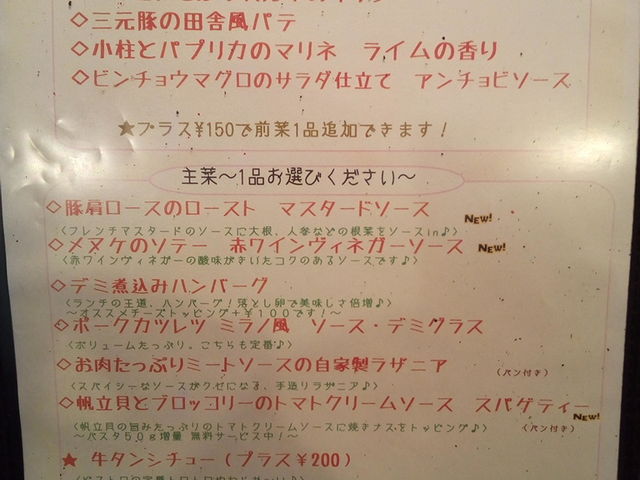 ◇三元豚の田舎風パテ
◇小柱とパプリカのマリネ　ライムの香り
◇ビンチョウマグロのサラダ仕立て　アンチョビソース
★プラス¥150で前菜1品追加できます！
主菜～1品お選びください～
◇豚肩ロースのロースト　マスタードソース
New!
〈フレンチマスタードのソースに大根、人参などの根菜をソースin♪〉
◇メヌケのソテー　赤ワインヴィネガーソース
New!
〈赤ワインヴィネガーの酸味がきいたコクのあるソースです♪〉
◇デミ煮込みハンバーグ
〈ランチの王道、ハンバーグ！落とし卵で美味しさ倍増♪〉
～オススメチーズトッピング＋¥１００です！～
◇ポークカツレツ ミラノ風　ソース・デミグラス
〈ボリュームたっぷり。こちらも定番♪〉
◇お肉たっぷりミートソースの自家製ラザニア
（パン付き）
〈スパイシーなソースがクセになる、手造りラザニア♪〉
◇帆立貝とブロッコリーのトマトクリームソース　スパゲティー
New!
〈帆立貝の旨みたっぷりのトマトクリームソースに焼きナスをトッピング♪〉
（パン付き）
～パスタ５０ｇ増量 無料サービス中！～
★ 牛タンシチュー（プラス¥200）